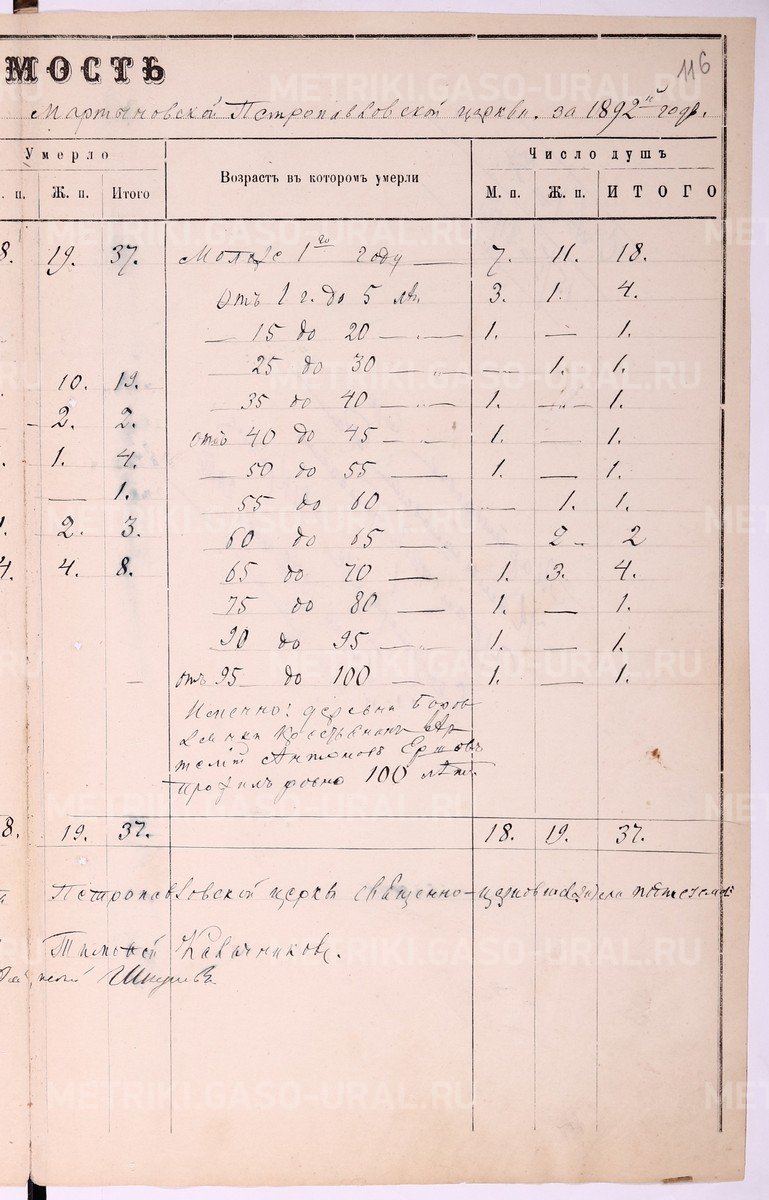 116
МОСТЬ
Мартыновской Петропавловской церкви. за 1892й годъ.
Умерло
Возрастъ въ которомъ умерли
Число душъ
п. Ж. п. Итого
М. п. Ж. п. ИТОГО
8. 19. 37. Моложе 1го году — 7. 11. 18.
Отъ 1 г. до 5 лѣт 3. 1. 4.
— 15 до 20 — „ — 1. — 1.
— 25 до 30 — „ — 1. 1.
10. 19.
— 35 до 40 — „ 1. — „ — 1.
2. 2.
отъ 40 до 45 — „ 1. — 1.
1. 4.
— 50 до 55 — 1. — 1.
— 1.
55 до 60 — 1. 1.
2. 3.
60 до 65 — — 2 2
4. 4. 8.
65 до 70 — 1. 3. 4.
75 до 80 — 1. — 1.
90 до 95 — „ 1. — 1.
отъ 95 до 100 — 1. — 1.
Именно: деревни Боров
лянки крестьянинъ Ар
темій Антоновъ Ершовъ
прожилъ ровно 100 лѣт.
8. 19. 37. 18. 19. 37.
Петропавловской церкви священно-
Тимофей Калачниковъ.
METRIKI.GASO-URAL.RU